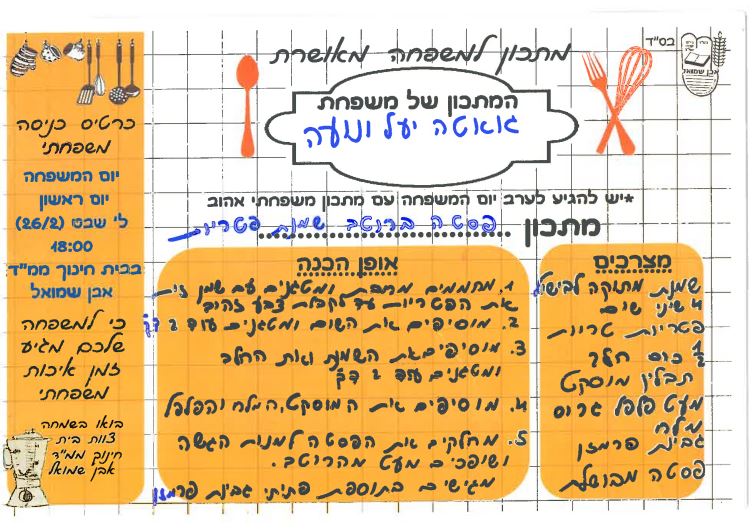 בס"ד
אבן שמואל
מתכון למשפחה מאושרת
המתכון של משפחת
גואטה יעל ונועה
*יש להגיע לערב יום המשפחה עם מתכון משפחתי אהוב
מתכון פסטה ברוטב שמנת פטריות
מצרכים
שמנת מתוקה לבישול
4 שיני שום
פטריות טריות
1/2 כוס חלב
תבלין מוסקט
מעט פלפל גרוס
מלח
גבינת פרמזן
פסטה מבושלת
אופן הכנה
1. מחממים מחבת ומטגנים עם שמן זית
את הפטריות עד לקבלת צבע זהוב
2. מוסיפים את השום ומטגנים עוד 2 דק'
3. מוסיפים את השמנת ואת החלב
ומטגנים עוד 2 דק'
4. מוסיפים את המוסקט, המלח והפלפל
5. מחלקים את הפסטה למנות הגשה
ושופכים מעט מהרוטב.
מגישים בתוספת פתיתי גבינת פרמזן
כרטיס כניסה
משפחתי
יום המשפחה
יום ראשון
ל' שבט (26/2)
18:00
בבית חינוך ממ"ד
אבן שמואל
כי למשפחה
שלכם מגיע
זמן איכות
משפחתי
בואו בשמחה
צוות בית
חינוך ממ"ד
אבן שמואל